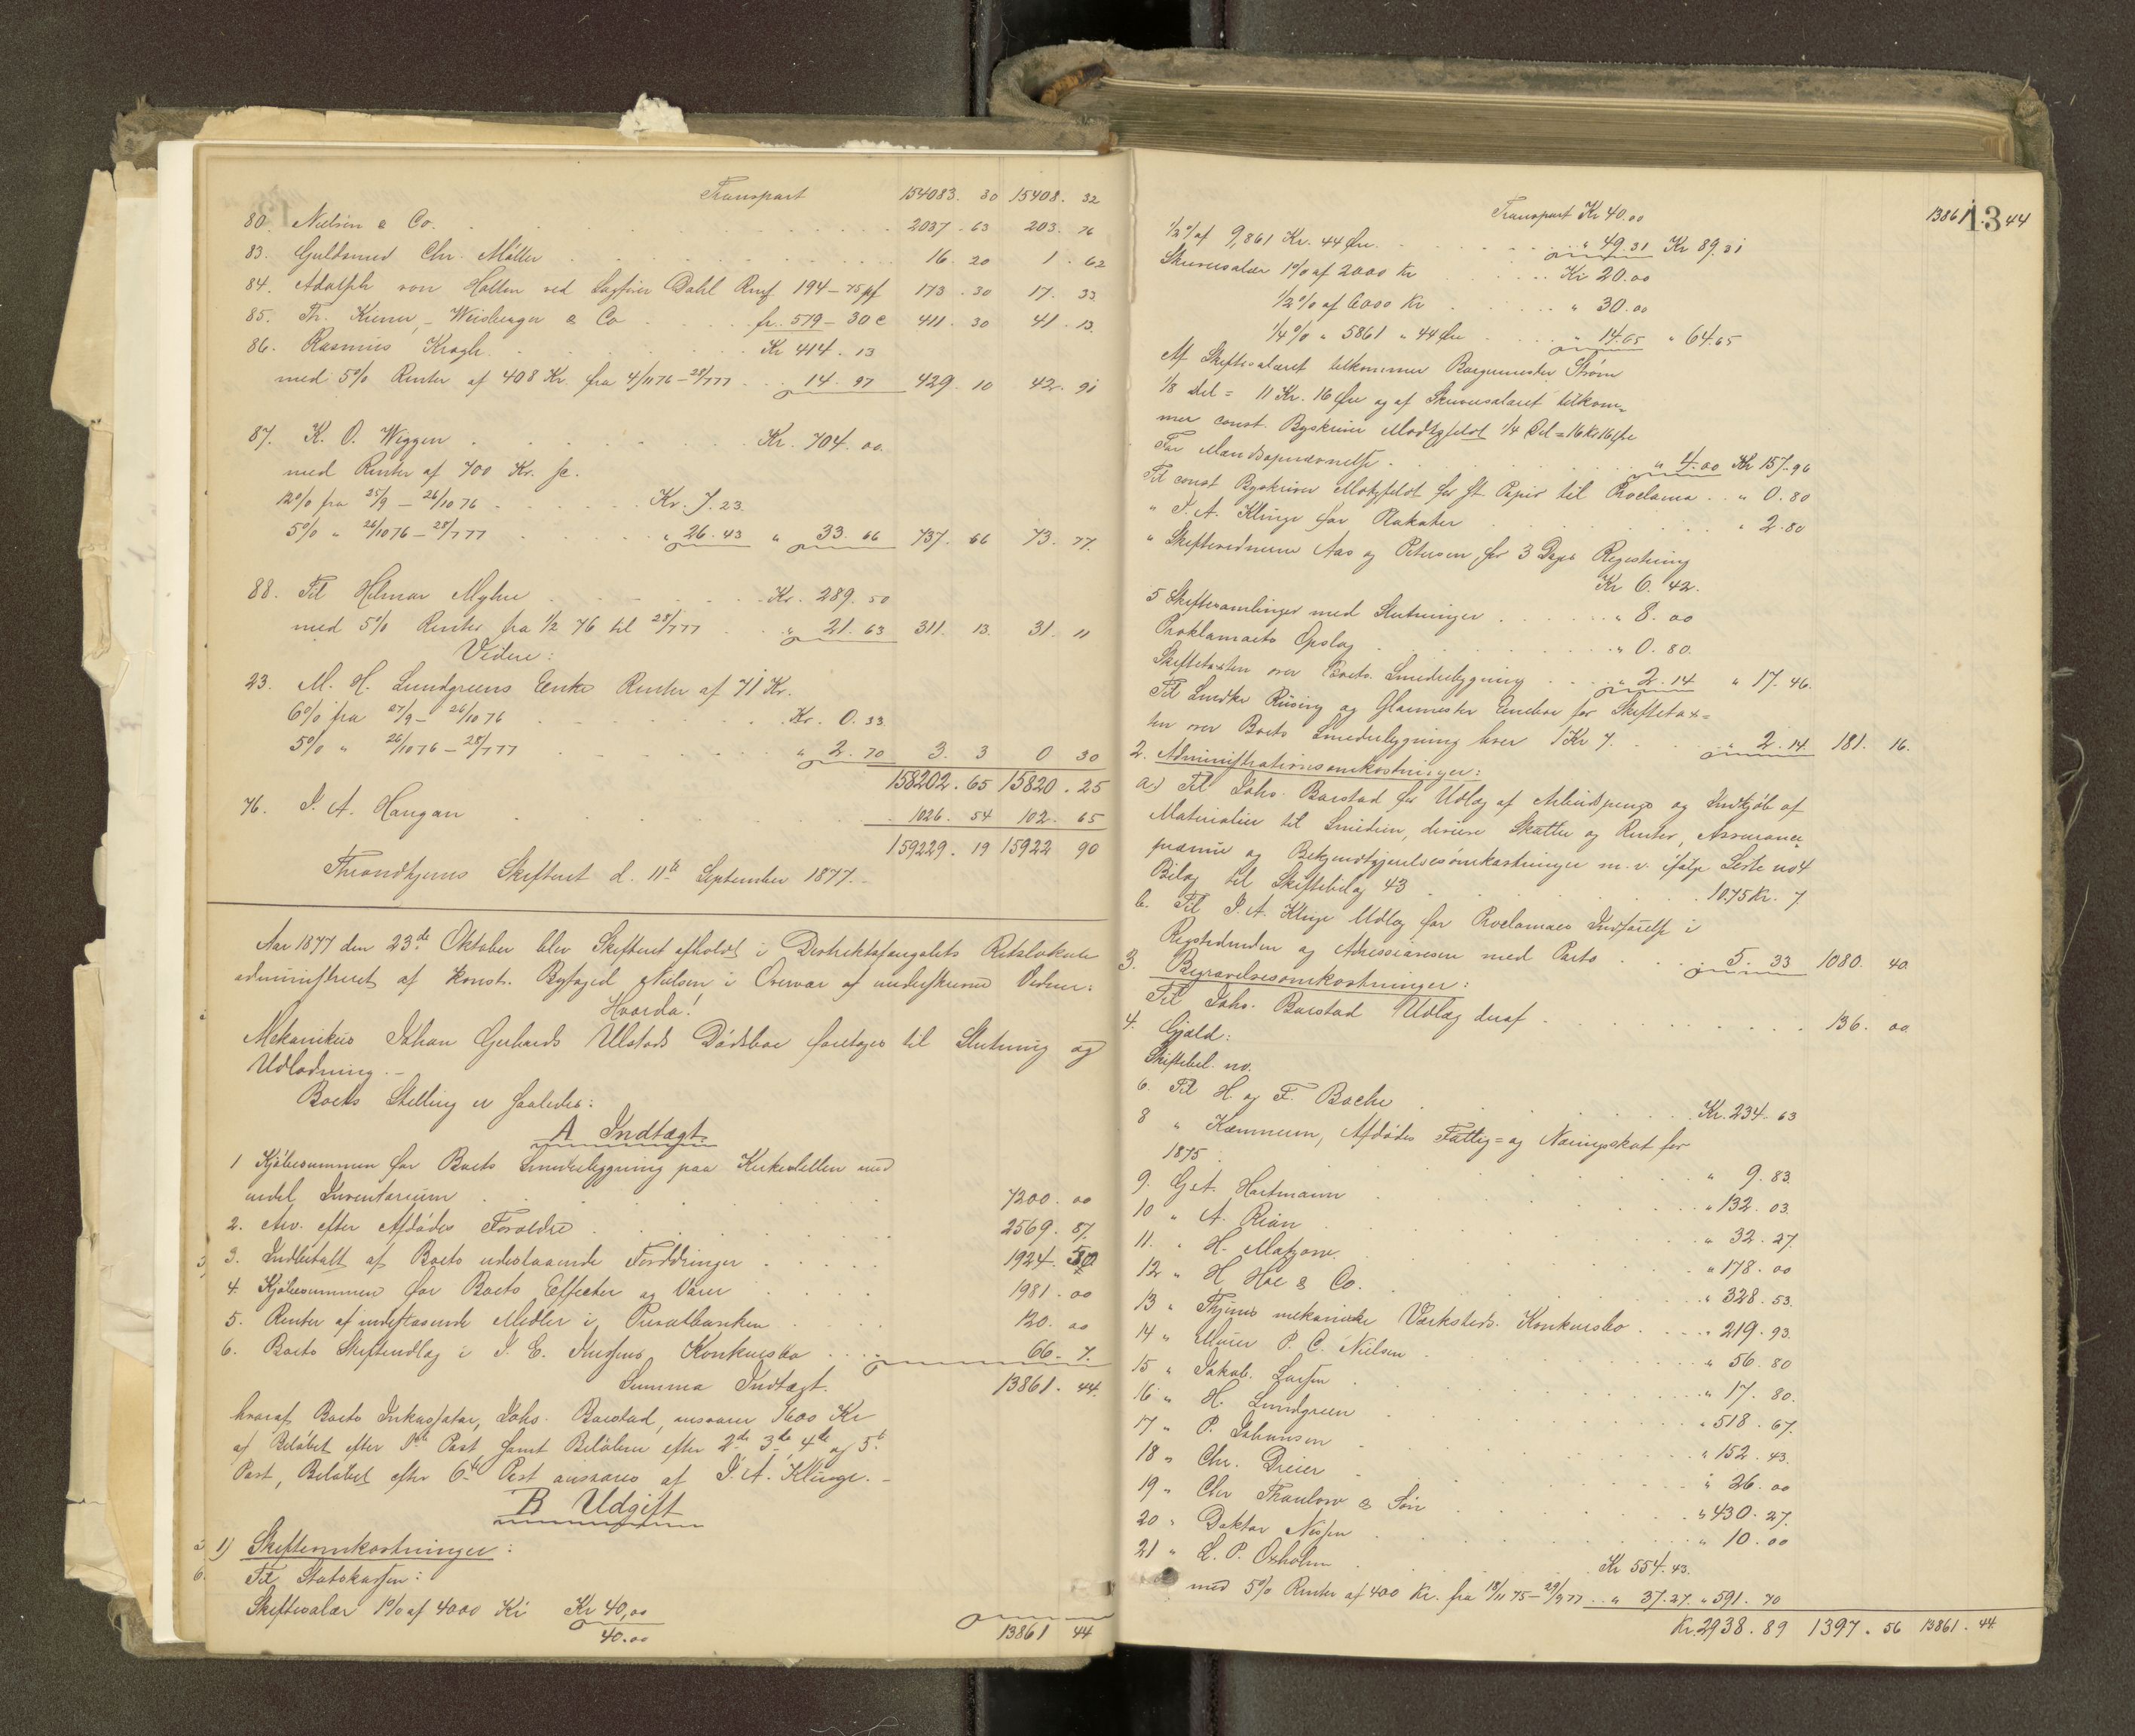 Transport 154083. 30 15408. 32
80. Nielsen & Co. 2037. 63 203. 76
83. Guldsmed Chr. Møller 16. 20 1. 62
84. Adolph von Hatten ved Sagfører Dahl Rmf 194-75 pf 173. 30 17. 33
85. Th. Kiener, Weisberger & Co fr. 579-30 c 411. 30 41. 13
86. Rasmus Krogh Kr 414. 13
med 5% Renter af 408 Kr. fra 4/11 76 - 28/7 77 14. 97 429. 10 42. 91
87. K. O. Wiggen Kr. 704. 00
med Renter af 700 Kr. sc.
12% fra 25/9 - 26/10 76 Kr. 7. 23.
5% " 26/10 76 - 28/7 77 " 26. 43 " 33. 66 737. 66 73. 77.
88. Til Helmar Myhre Kr. 289. 50
med 5% Renter fra 1/2 76 til 28/7 77 " 21. 63 311. 13. 31. 11
Videre:
23. M. H. Lundgreens Enke Renter af 71 Kr.
6% fra 27/9 - 26/10 76 Kr. 0. 33
5% " 26/10 76 - 28/7 77 " 2. 70 3. 3 0 30
158202. 65 15820. 25
76. I. A. Haugan 1026. 54 102. 65
159229. 19 15922 90
Throndhjems Skifteret d. 11te September 1877.
Aar 1877 den 23de Oktober blev Skifteret afholdt i Distriktsfængslets Retslokale
administreret af konst. Byfoged Nielsen i Overvær af underskrevne Vidner:
Hvorda!
Mekanikus Johan Gerhard Ulstads Dødsbo foretoges til Slutning og
Udlodning.-
Boets Stilling er saaledes:
A Indtægt.
1 Kjøbesummen for Boets Smedebygning paa Kirkesletten med
endel Inventarium 7200. 00
2. Arv efter Afdødes Forældre 2569. 87.
3. Indbetalt af Boets udestaaende Fordringer 1924. 50
4. Kjøbesummen for Boets Effecter og Varer 1981. 00
5. Renter af indestaaende Midler i Privatbanken 120. 00
6. Boets Skifteudlæg i I. E. Konkursbo 66. 7.
Summa Indtægt. 13861. 44.
hvoraf Boets Inkassator, Johs. Barstad, ansvarer 5600 Kr
af Beløbet efter 1ste Post samt Beløbene efter 2de 3die 4de og 5te
Post, Beløbet efter 6te Post ansvares af I. A. Klinge.-
B Udgift
1) Skifteomkostninger:
Til Statskassen:
Skiftesalær 1% af 4000 Kr Kr 40,00
40.00 13861 44
13
Transport Kr 40.00 13861. 44
1/2% af 9,861 Kr. 44 Øre " 49.31 Kr 89.31
Skriversalær 1% af 2000 Kr Kr 20.00
1/2% af 6000 Kr " 30.00
1/4% " 5861 " 44 Øre " 14.65 " 64.65
Af Skiftesalæret tilkommer Borgermester Strøm
1/8 Del = 11 Kr. 16 Øre og af Skriversalæret tilkom-
mer const. Byskriver Motzfeldt 1/4 Del = 16 Kr 16 Øre
For Mandsopnævnelse " 4.00 Kr 157.96
Til const Byskriver Motzfeldt for st. Papir til Proclama " 0. 80
" I. A. Klinge for Plakater " 2. 80
" Skiftevidnerne Aas og Petersen, for 3 Dages Registrering
Kr 6. 42.
5 Skiftesamlinger med Slutninger " 8. 00
Proklamaets Opslag " 0. 80.
Skiftetaxten over Boets Smedebygning " 2. 14 " 17. 46.
Til Snedker Riising og Glarmester for Skiftetax-
ten over Boets Smedebygning hver 1 Kr 7. " 2. 14 181. 16.
2. Administrationsomkostninger:
a) Til Johs. Barstad for Udlæg af Arbeidspenge og Indkjøb af
Materialier til Smedien, diverse Skatter og Renter, Assurance-
præmie og Bekjendtgjørelsesomkostninger m. v. ifølge Liste no 4
Bilag til Skiftebilag 43 1075 Kr. 7
b. Til I. A. Klinge Udlæg for Proclamaes Indførelse i
Rigstidenden og Adresseavisen med Porto 5. 33 1080. 40.
3. Begravelsesomkostninger:
Til Johs. Barstad Udlæg deraf 136. 00
4. Gjæld:
Skiftebil. no.
6. Til H. og F. Bache Kr. 234. 63
8 " Kæmneren, Afdødes Fattig- og Næringsskat for
1875 " 9. 83.
9. G. A. Hartmann " 132. 03.
10 " A. Rian " 32. 27.
11. " H. Matzow " 178. 00
12 " H. Hoe & Co. " 328. 53.
13 " Thjems mekaniske Værksteds Konkursbo " 219. 93.
14 " Murer P. C. Nielsen " 56. 80
15 " Jakob Larsen " 17. 80.
16 " H. Lundgreen " 518. 67.
17 " P. Johansen " 152. 43.
18 " Chr. Dreier " 26. 00
19 " Chr Thaulow & Søn " 430. 27.
20 " Doktor Nissen " 10. 00
21 " L. P. Oxholm Kr 554. 43.
med 5% Renter af 400 Kr. fra 18/11 75 - 29/9 77 " 37. 27. " 591. 70
Kr. 2938. 89 1397. 56 13861. 44.